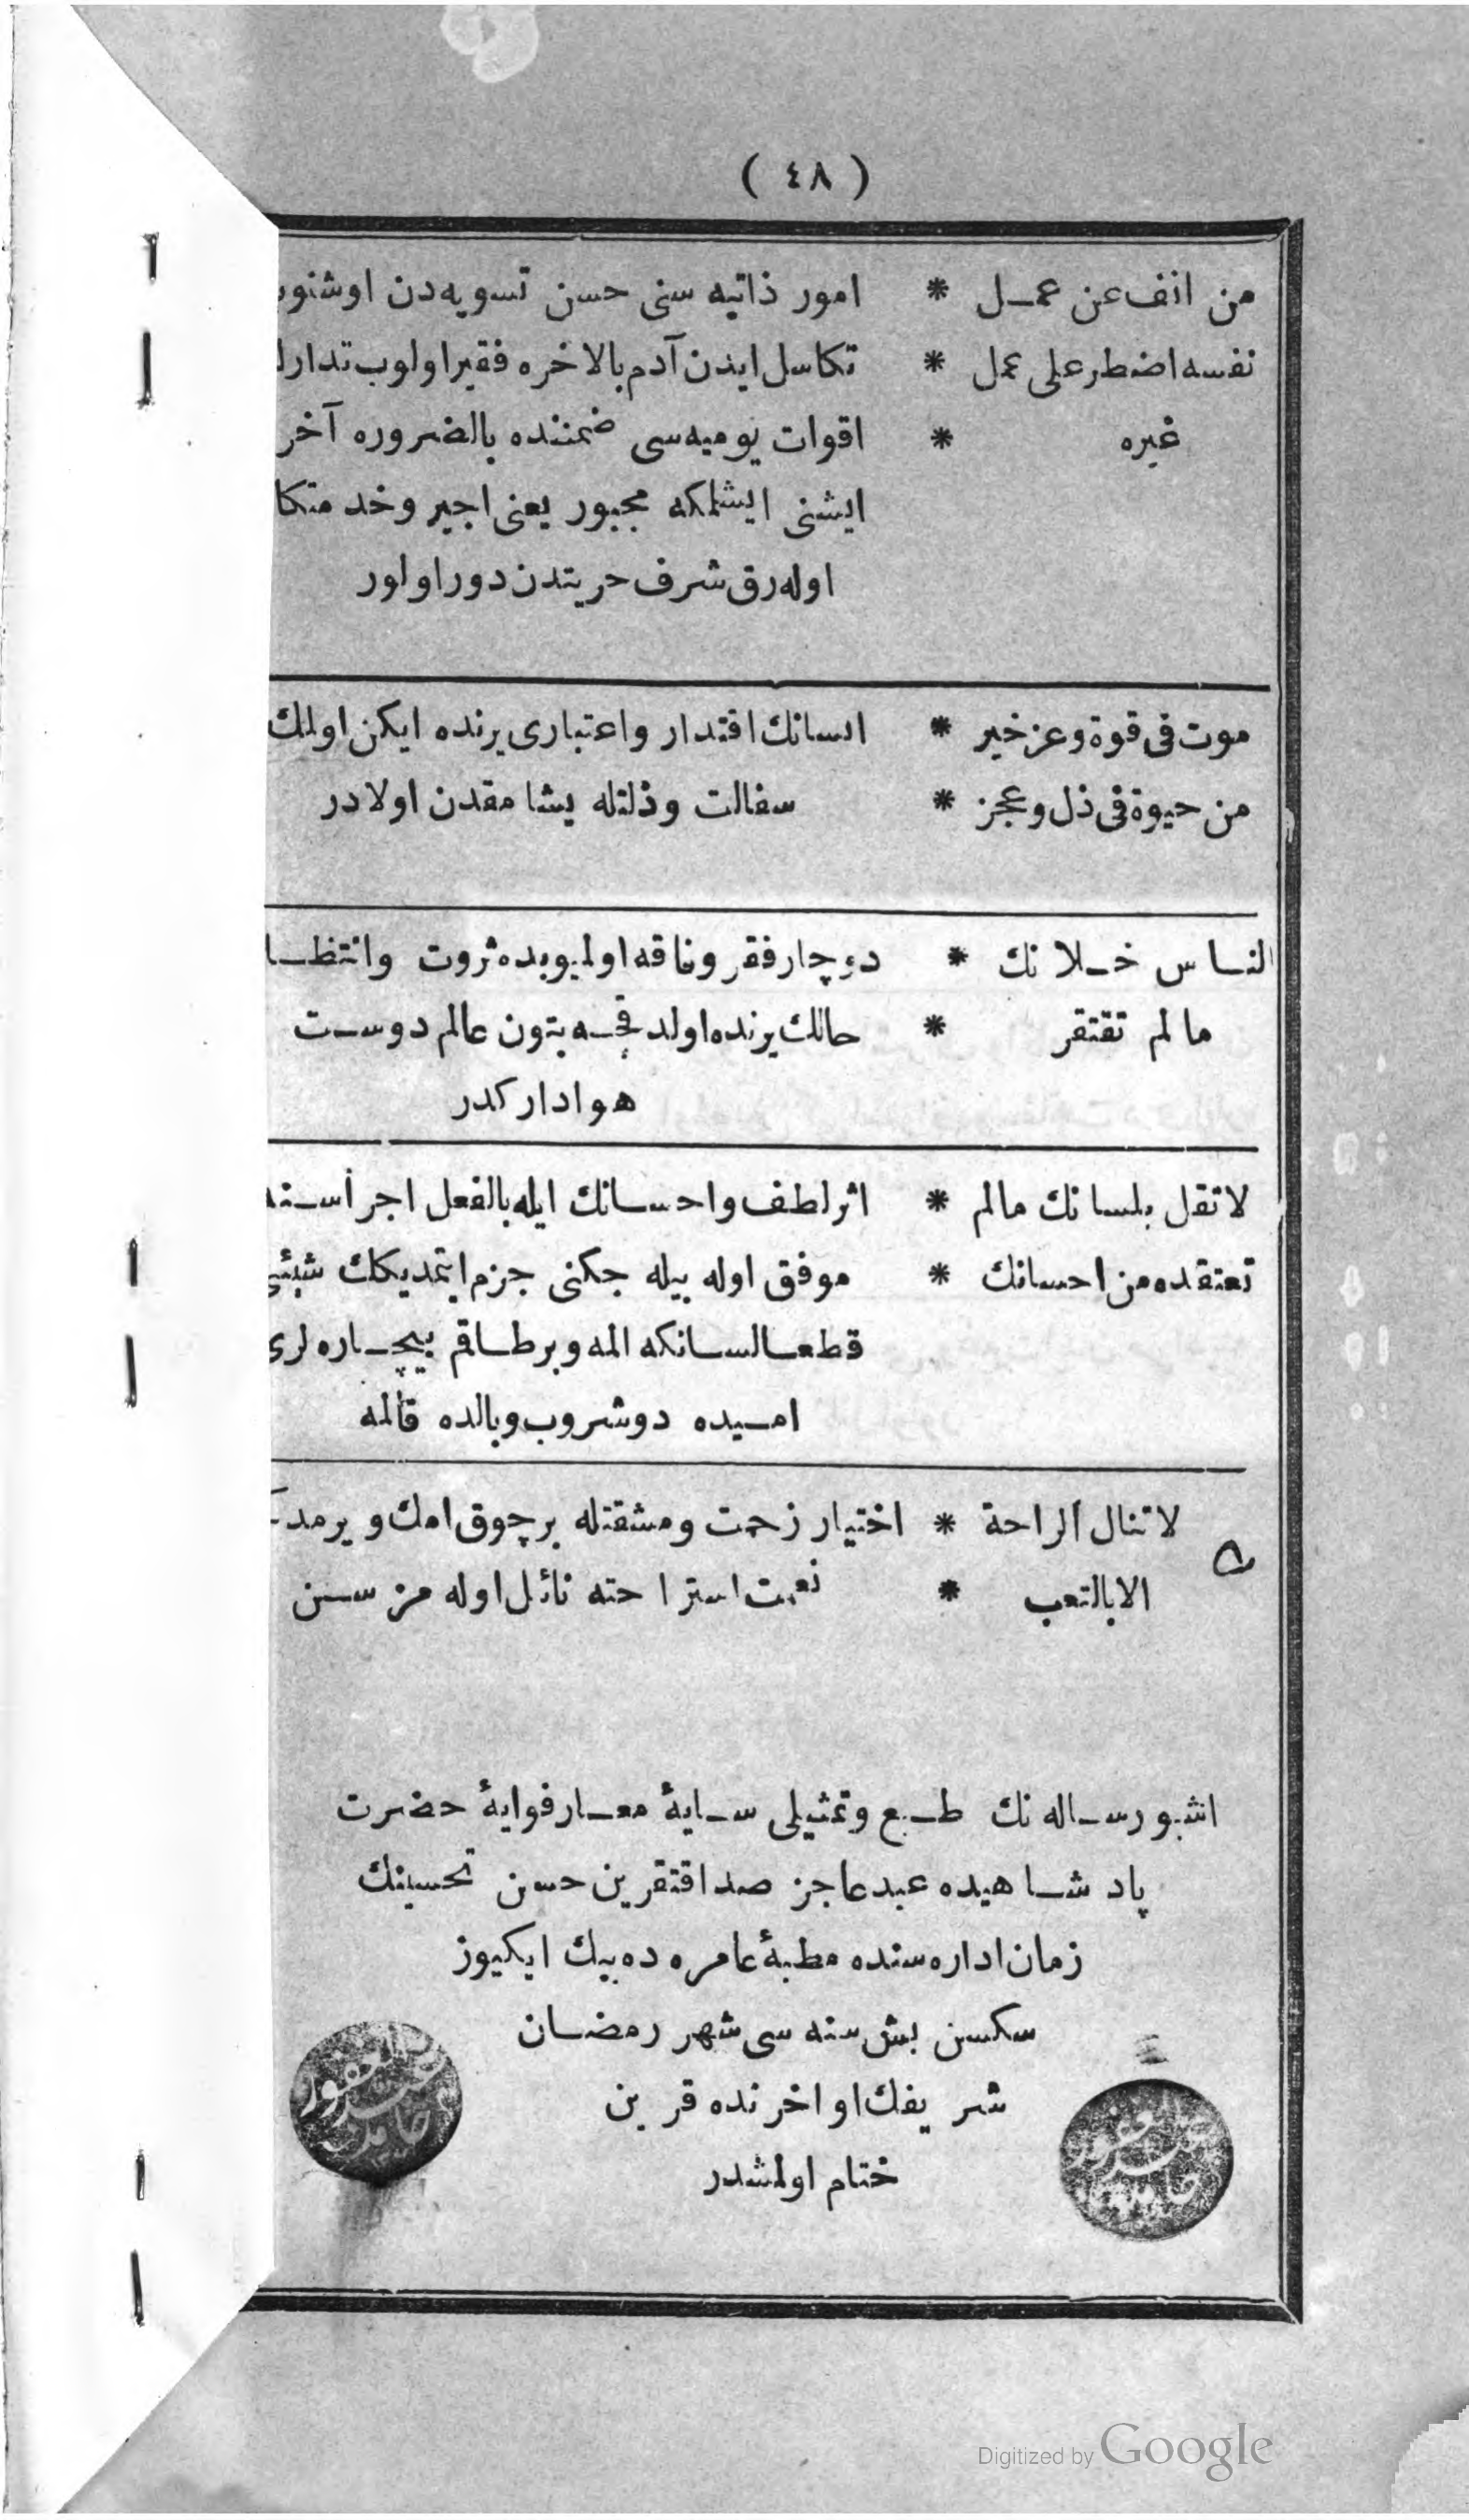 ( ٤٨ )
من انف عن عمل * امور ذاتيه سنى حسن تسويه دن
نفسه اضطر على عمل * تكاسل ايدن آدم بالاخره فقير اولوب
غيره * اقوات يوميه سى ضمننده بالضروره آخر
ايشنى ايشلمكه مجبور يعنى اجير و خدمتكا
اوله رق شرف حريتدن دور اولور
موت فى قوة وعز خير * انسانك اقتدار واعتبارى يرنده ايكن اولمك
من حيوة فى ذل وعجز * سفالت وذلتله يشامقدن اولادر
الناس خلانك * دوچار فقر وفاقه اوليوبده ثروت وانتظا
ما لم تفتقر * حالك يرنده اولدقچه بتون عالم دوست
هوادار كدر
لا تقل بلسانك مالم * اثر لطف واحسانك ايله بالفعل اجراسنه
تعتقده من احسانك * موفق اوله بيله جكنى جزم ايتمديكك شيئى
قطعا لسانكه المه وبرطاقم بيچاره لرى
اميده دوشروب وبالده قالمه
لا تنال الراحة * اختيار زحمت ومشقتله برچوق امك ويرمد
الا بالتعب * نعمت استراحته نائل اوله مز سن
اشبو رساله نك طبع وتمثيلى سايۀ معارفوايۀ حضرت
پادشاهيده عبد عاجز صداقتقرين حسن تحسينك
زمان اداره سنده مطبۀ عامره ده بيك ايكيوز
سكسن بش سنه سى شهر رمضان
شريفك اواخرنده قرين
ختام اولمشدر
Digitized by Google